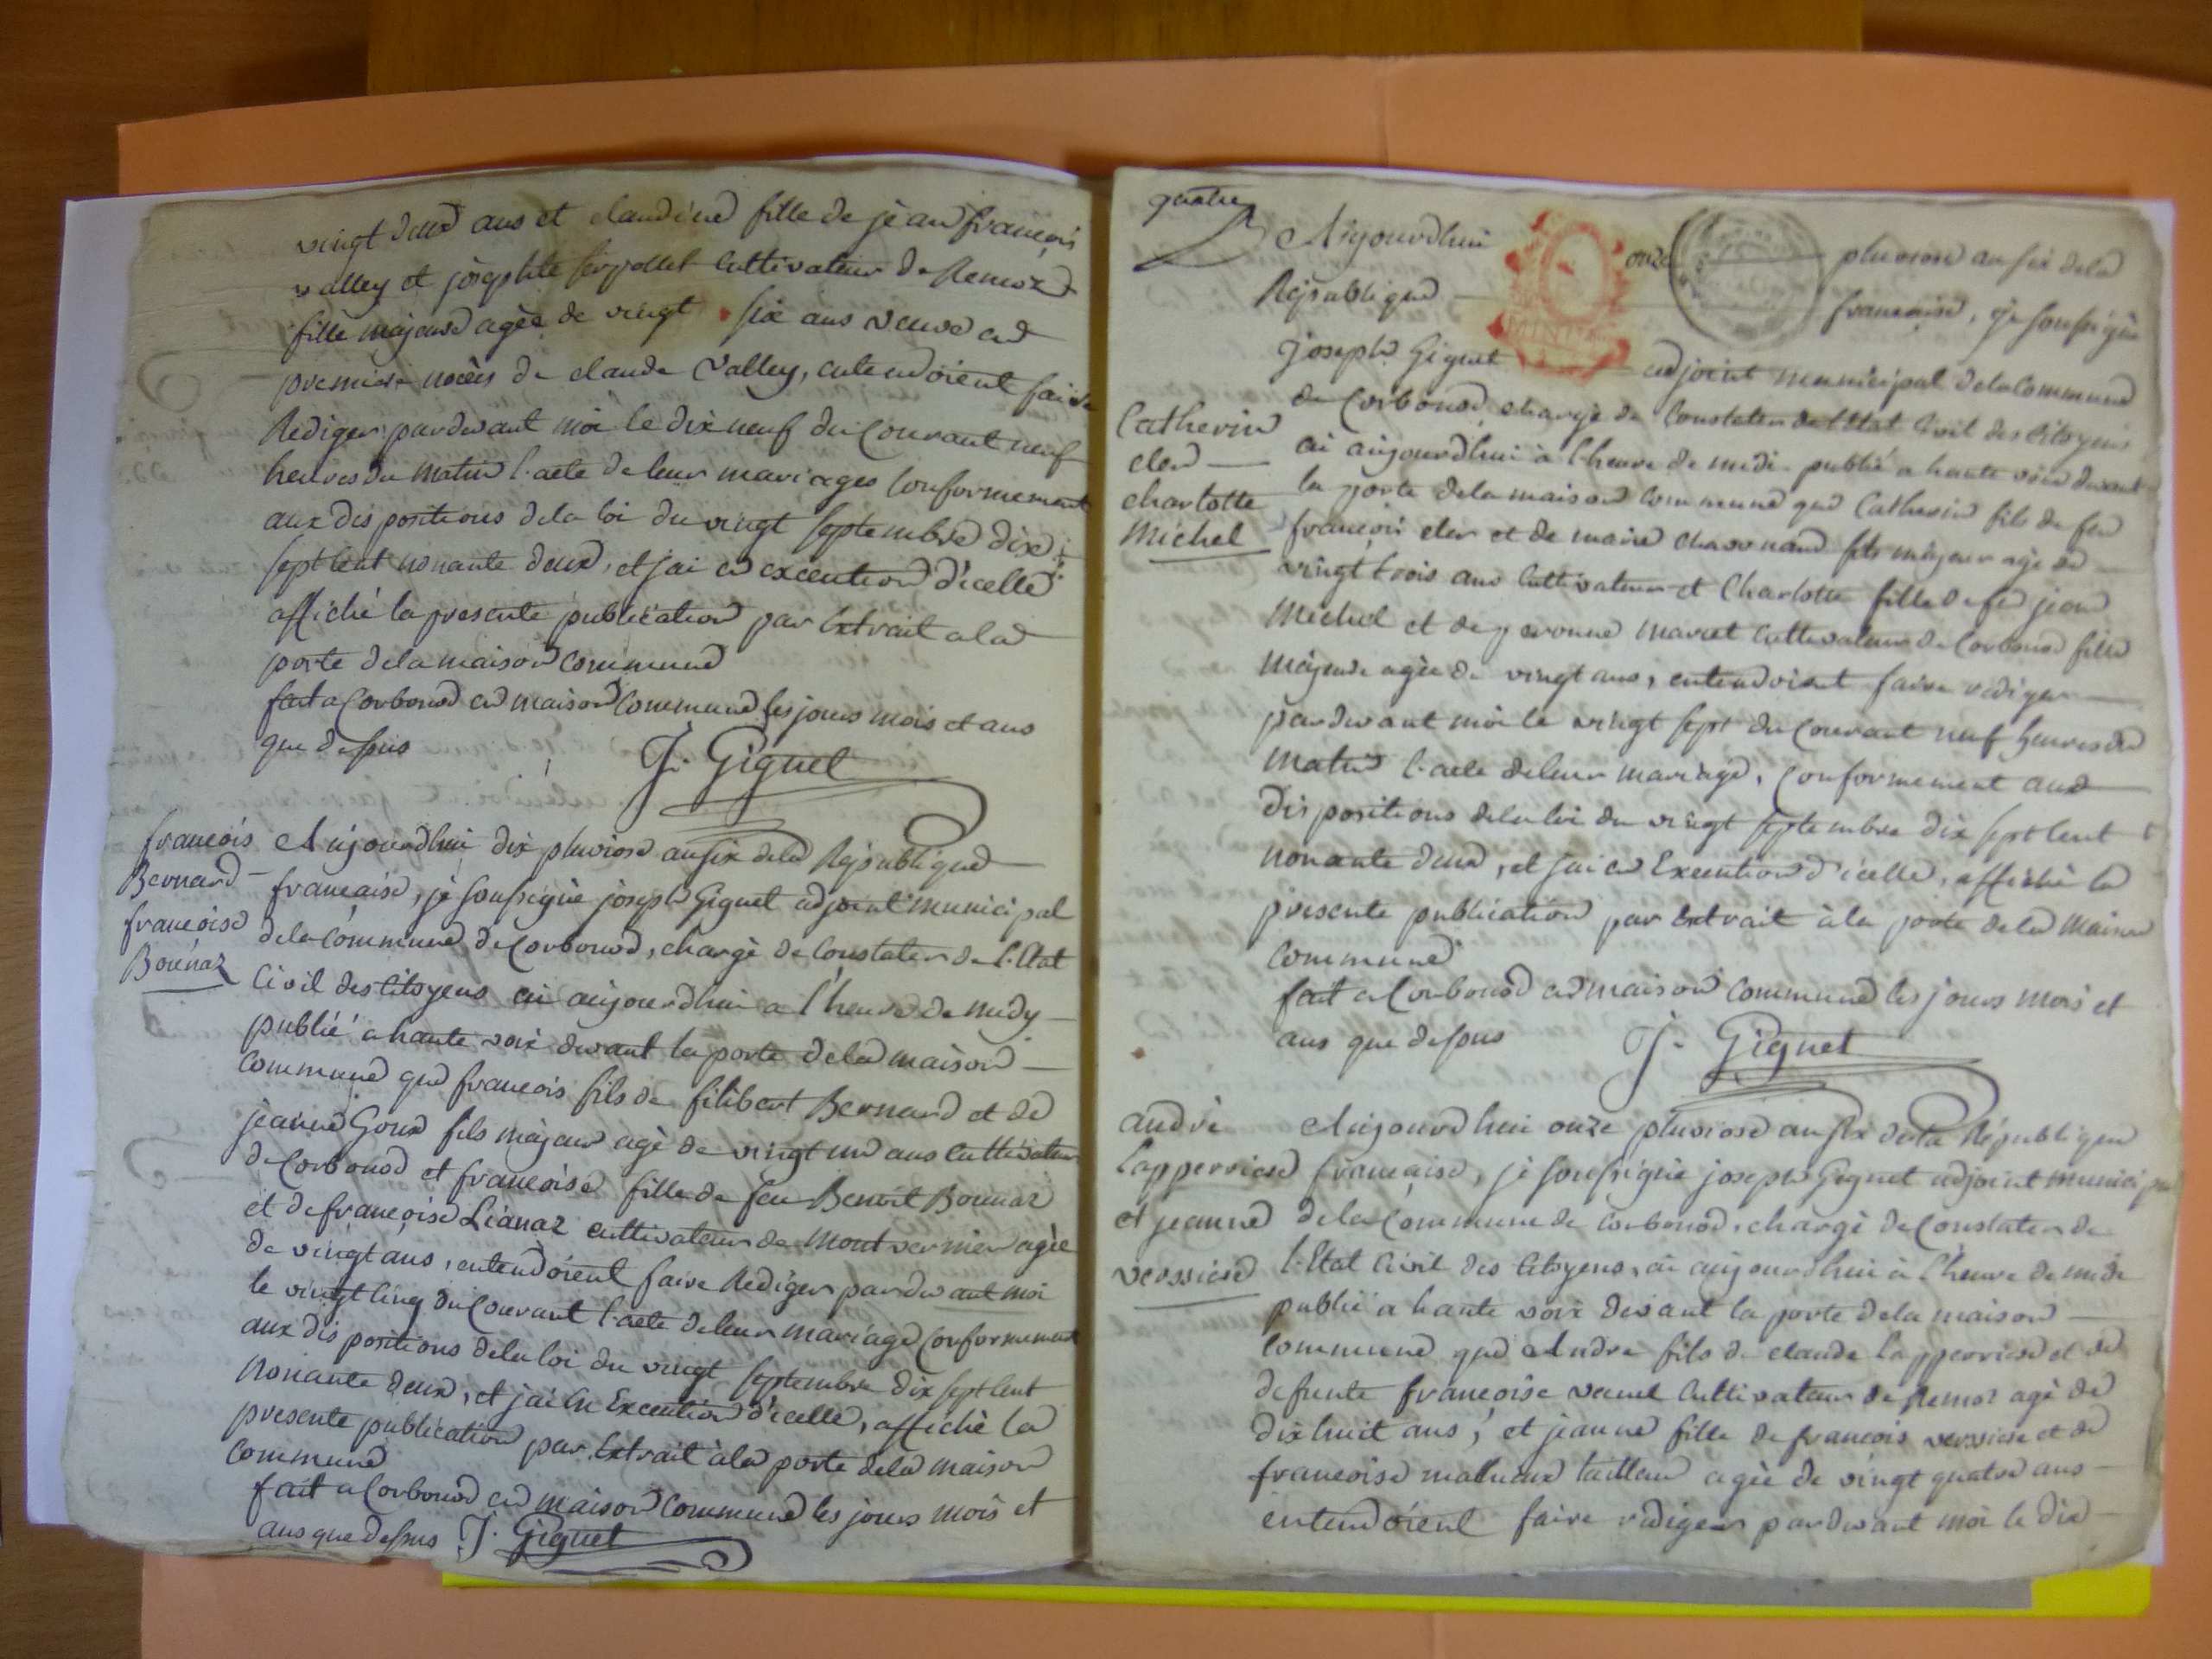 vingt deux ans et claudine fille de jèan francois
valley et jòsephte cultivateur de Remoz
fille majeure agèe de vingt six ans veuve en
premiere nocès de claude Valley, entendoient faire
Rediger pardevant moi le dix neuf du Courant neuf
heures du matin l'acte de leur mariages Conformement
aux dispositions de la loi du vingt septembre dix
sept Cent nonante deux, et jai en execution d'icelle
affiché la presente publication par Extrait a la
porte de la maison commune
fait a Corbonod en maison Commune les jours mois et ans
que dessus J. Giguet
francois
Bernard
francoise
Bonnaz
Aujourdhui dix pluviose an six de la Republique
francaise, jè soussignè jòseph Giguet adjoint municipal
de la Commune de Corbonod, chargè de Constater de l'Etat
Civil des Citoyens ai aujourdhui a l'heure de midy
publié a haute voix devant la porte de la maison
Commune que francois fils de filibert Bernard et de
jèanne Goux fils majeur agè de vingt un ans Cultivateur
de Corbonod et francoise fille de feu Benoit Bonnaz
et de francoise Lianaz cultivateur de Montvernier agèe
de vingt ans, entendoient faire Rediger pardevant moi
le vingt Cinq du Courant l'acte de leur mariage Conformement
aux dispositions de la loi du vingt septembre dix sept Cent
Nonante deux, et jai En Execution d'icelle, affichè la
presente publication par Extrait à la porte de la maison
Commune
fait a Corbonod en maison Commune les jours mois et
ans que dessus J. Giguet
quatre
Aujourdhui onze pluviose an six de la
Republique francaise, je soussignè
Joseph Giguet adjoint municipal de la Commune
de Corbonod, chargè de Constater de l'Etat Civil des Citoyens
ai aujourdhui à l'heure de midi publié a haute voix devant
la porte de la maison Commune que Catherin fils de feu
francois cler et de marie fils majeur agè de
vingt trois ans Cultivateur et Charlotte fille de feu jean
Michel et de pèronne Cultivateur de Corbonod fille
majeure agèe de vingt ans, entendoient faire rediger
pardevant moi le vingt sept du Courant neuf heures du
matin l'acte de leur mariage, Conformement aux
dispositions de la loi du vingt septembre dix sept Cent
nonante deux, et jai en Execution d'icelle, affichè la
presente publication par Extrait à la porte de la maison
Commune
fait a Corbonod en maison Commune les jours mois et
ans que dessus J. Giguet
Catherin
cler
charlotte
Michel
andrè
Lapperriere
et jeanne
Aujourdhui onze pluviose an six de la République
francaise, jè soussignè joseph Giguet adjoint municipal
de la Commune de Corbonod, chargè de Constater de
l'Etat Civil des Citoyens, ai aujourdhui à l'heure de midi
publié a haute voix devant la porte de la maison
Commune que Andre fils de claude Lapperriere et de
defunte francoise Cultivateur de Remoz agè de
dix huit ans, et jeanne fille de francois et de
francoise tailleur agèe de vingt quatre ans
entendoient faire rediger pardevant moi le dix